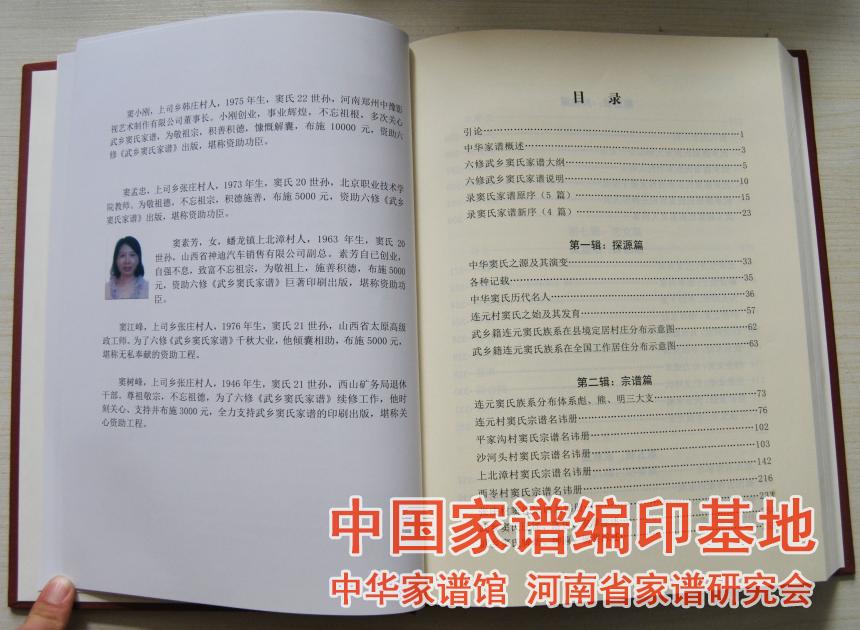 窦小刚，上司乡韩庄村人，1975年生，窦氏22世孙，河南郑州中豫影
视艺术制作有限公司董事长。小刚创业，事业辉煌，不忘祖根，多次关心
武乡窦氏家谱，为敬祖宗，积善积德，慷慨解囊，布施10000元，资助六
修《武乡窦氏家谱》出版，堪称资助功臣。
窦孟忠，上司乡张庄村人，1973年生，窦氏20世孙，北京职业技术学
院教师。为敬祖德，不忘祖宗，积德施善，布施5000元，资助六修《武乡
窦氏家谱》出版，堪称资助功臣。
窦素芳，女，蟠龙镇上北漳村人，1963年生，窦氏20
世孙，山西省神迪汽车销售有限公司副总。素芳自已创业，
自强不息，致富不忘祖宗，为敬祖上，施善积德，布施5000
元，资助六修《武乡窦氏家谱》巨著印刷出版，堪称资助功
臣。
窦江峰，上司乡张庄村人，1976年生，窦氏21世孙，山西省太原高级
政工师。为了六修《武乡窦氏家谱》千秋大业，他倾囊相助，布施5000元，
堪称无私奉献的资助工程。
窦树峰，上司乡张庄村人，1946年生，窦氏21世孙，西山矿务局退休
干部。尊祖敬宗，不忘祖德，为了六修《武乡窦氏家谱》续修工作，他时
刻关心、支持并布施3000元，全力支持武乡窦氏家谱的印刷出版，堪称关
心资助工程。
目 录
引论……1
中华家谱概述……3
六修武乡窦氏家谱大纲……5
六修武乡窦氏家谱说明……10
录窦氏家谱原序（5篇）……15
录窦氏家谱新序（4篇）……23
第一辑：探源篇
中华窦氏之源及其演变……33
各种记载……35
中华窦氏历代名人……36
连元村窦氏之始及其发育……57
武乡籍连元窦氏族系在县境定居村庄分布示意图……62
武乡籍连元窦氏族系在全国工作居住分布示意图……63
第二辑：宗谱篇
连元窦氏族系分布体系彪、熊、明三大支……73
连元村窦氏宗谱名讳册……76
平家沟村窦氏宗谱名讳册……102
沙河头村窦氏宗谱名讳册……103
上北漳村窦氏宗谱名讳册……142
西岑村窦氏宗谱名讳册……216
中国家谱编印基地
中华家谱馆 河南省家谱研究会